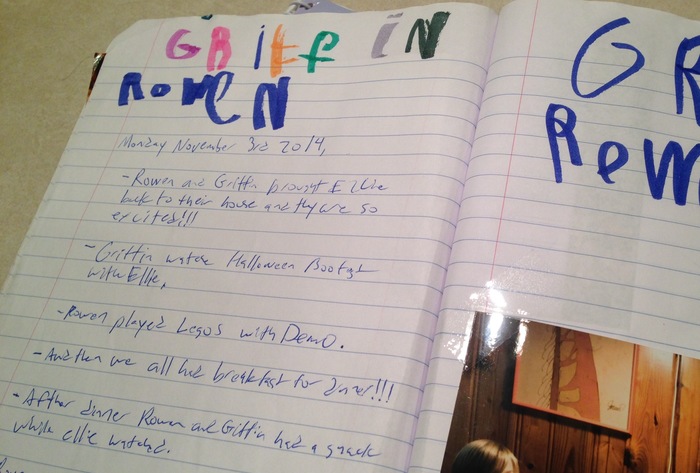 GRiffiN
RoweN
Monday November 3rd 2014,
- Rowen and Griffin brought Ellie
back to their house and they are so
excited!!!
- Griffin watched Halloween
with Ellie.
- Rowen played Legos with Demo.
- And then we all had breakfast for dinner!!!
- After dinner Rowen and Griffin had a snack
while ellie watched.
GR
Row